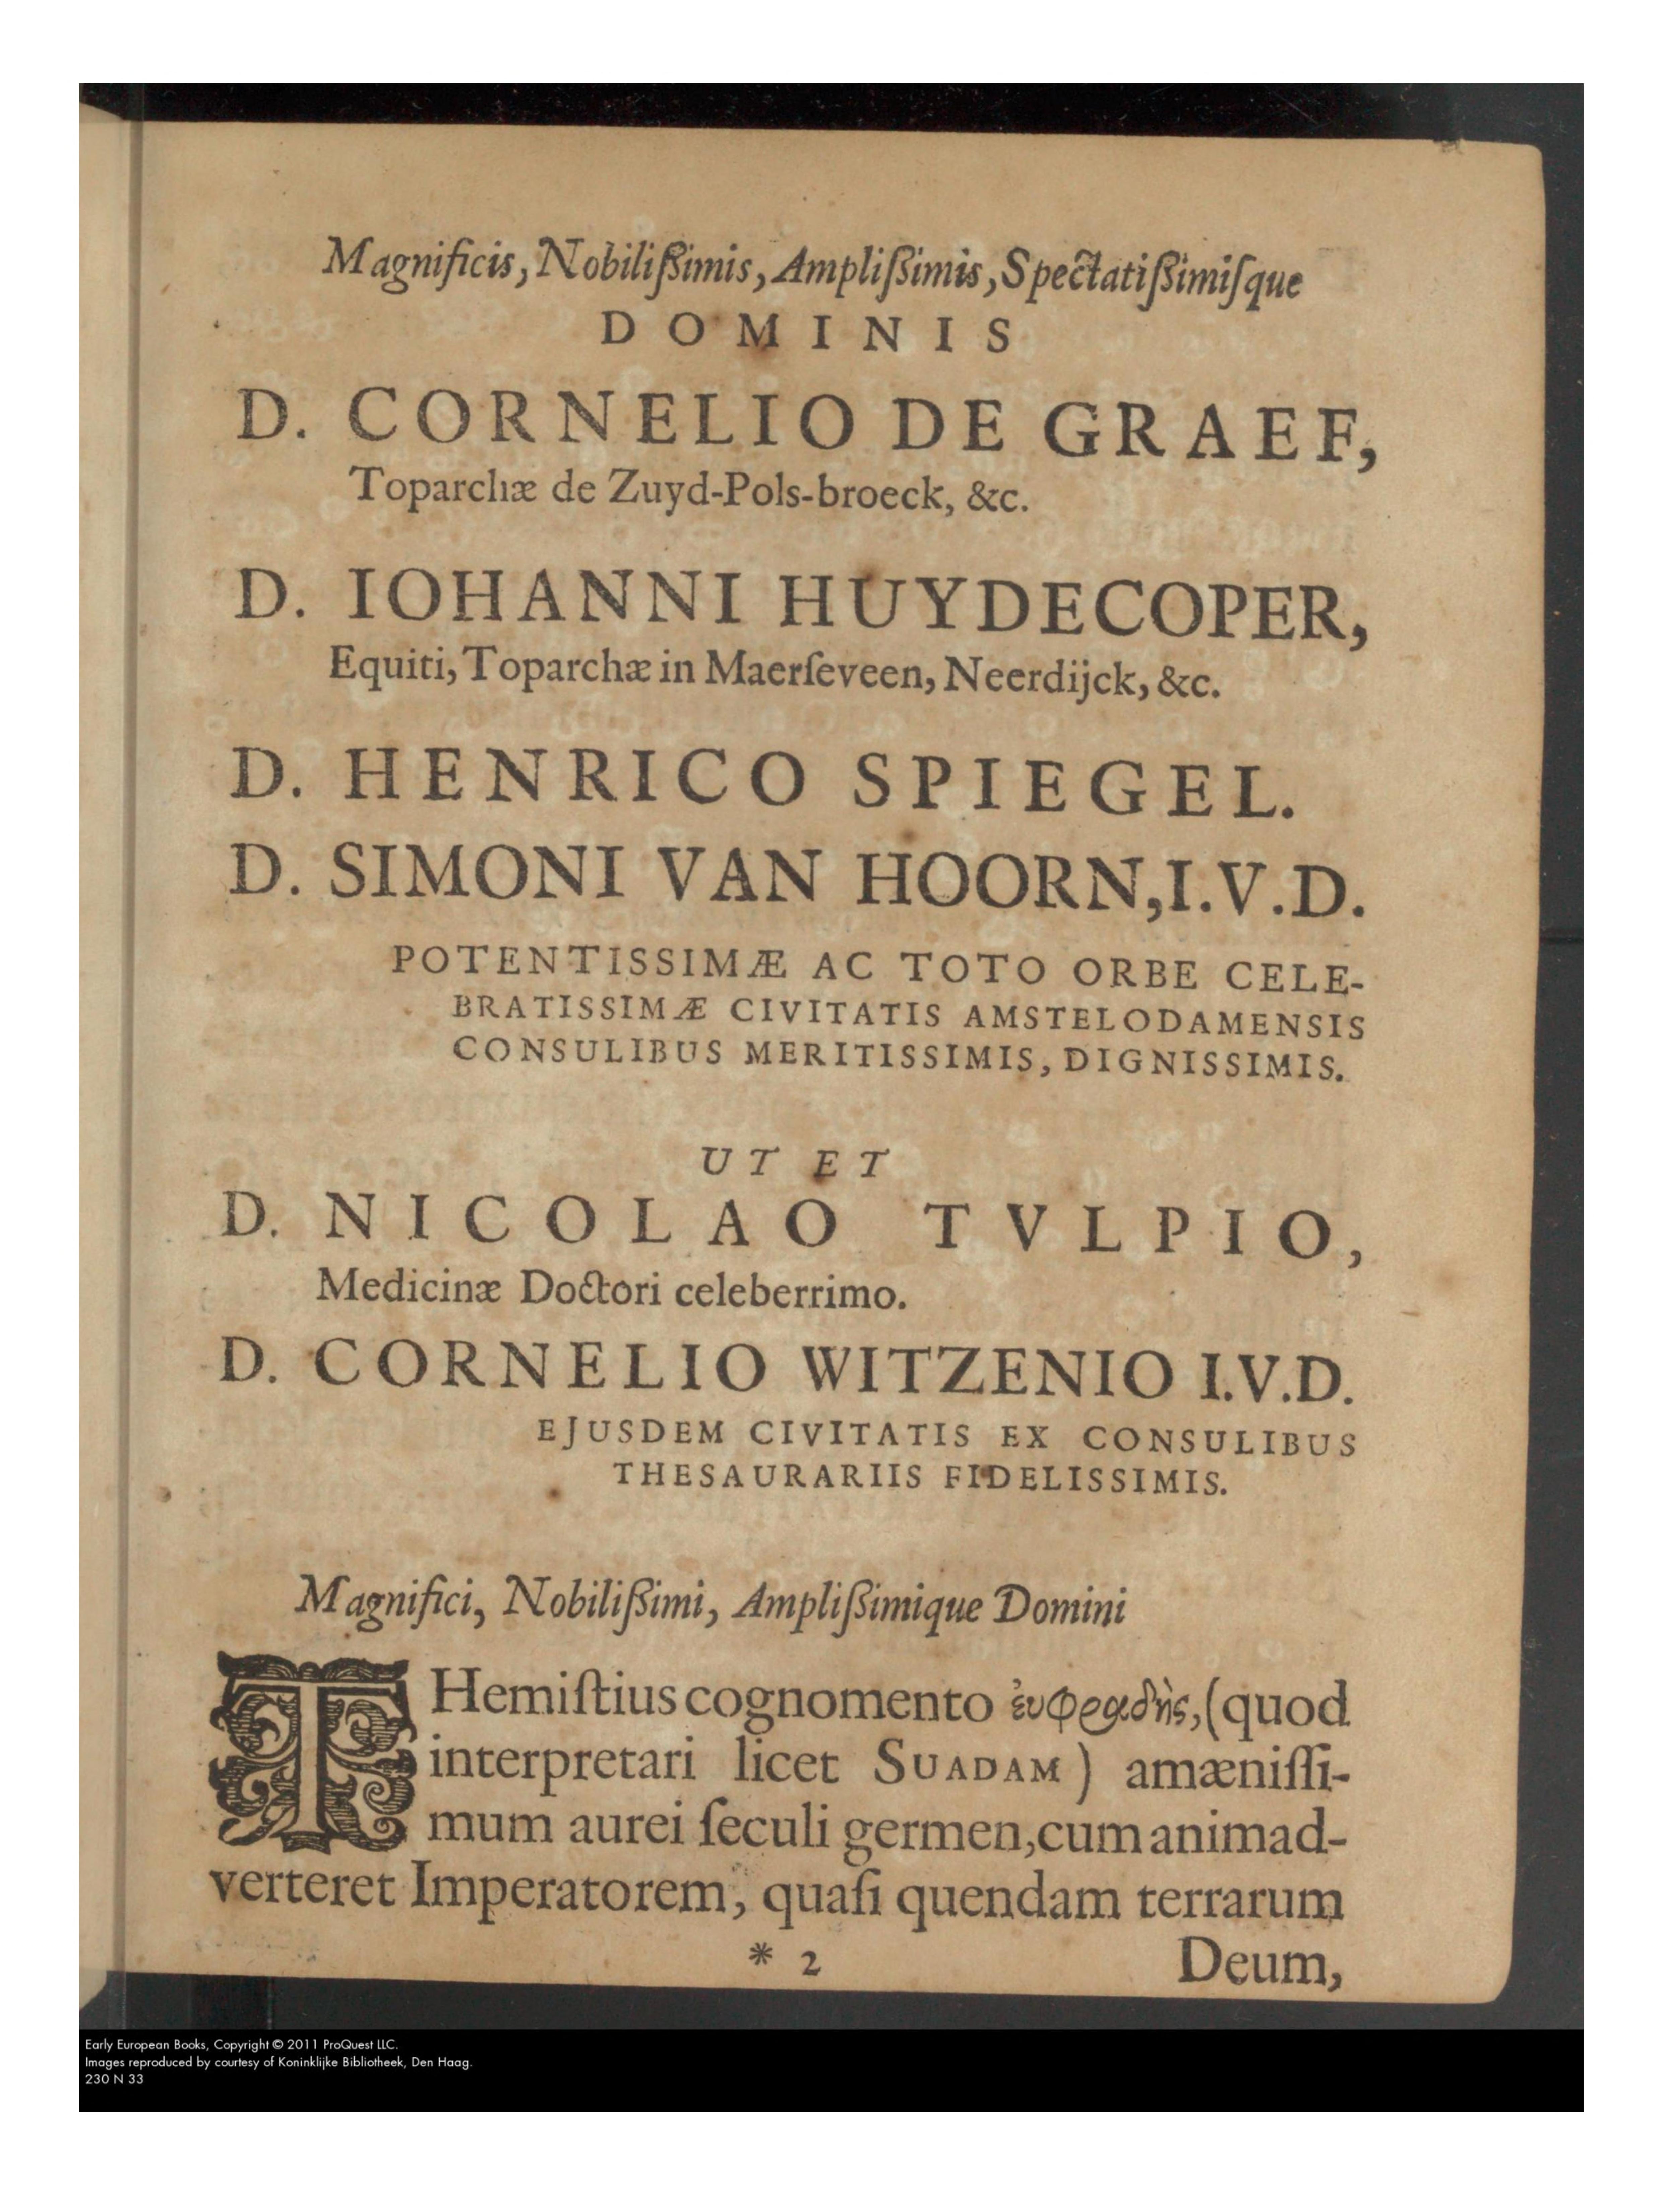 Magnificis, Nobilißimis, Amplißimis, Spectatißimiſque
DOMINIS
D. CORNELIO DE GRAEF,
Toparchæ de Zuyd-Pols-broeck, &c.
D. IOHANNI HUYDECOPER,
Equiti, Toparchæ in Maerſeveen, Neerdijck, &c.
D. HENRICO SPIEGEL.
D. SIMONI VAN HOORN, I.V.D.
POTENTISSIMÆ AC TOTO ORBE CELE-
BRATISSIMÆ CIVITATIS AMSTELODAMENSIS
CONSULIBUS MERITISSIMIS, DIGNISSIMIS.
UT ET
D. NICOLAO TVLPIO,
Medicinæ Doctori celeberrimo.
D. CORNELIO WITZENIO I.V.D.
EJUSDEM CIVITATIS EX CONSULIBUS
THESAURARIIS FIDELISSIMIS.
Magnifici, Nobilißimi, Amplißimique Domini
THemiſtius cognomento ἐυφραδὴς, (quod
interpretari licet SUADAM) amæniſſi-
mum aurei ſeculi germen, cum animad-
verteret Imperatorem, quaſi quendam terrarum
* 2 Deum,
Early European Books, Copyright © 2011 ProQuest LLC.
Images reproduced by courtesy of Koninklijke Bibliotheek, Den Haag.
230 N 33